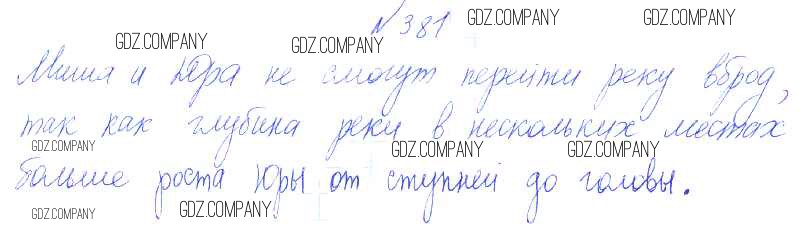 № 381
GDZ.COMPANY GDZ.COMPANY GDZ.COMPANY
Миша и Юра не смогут перейти реку вброд,
так как глубина реки в нескольких местах
GDZ.COMPANY GDZ.COMPANY GDZ.COMPANY
больше роста Юры от ступней до головы.
GDZ.COMPANY GDZ.COMPANY